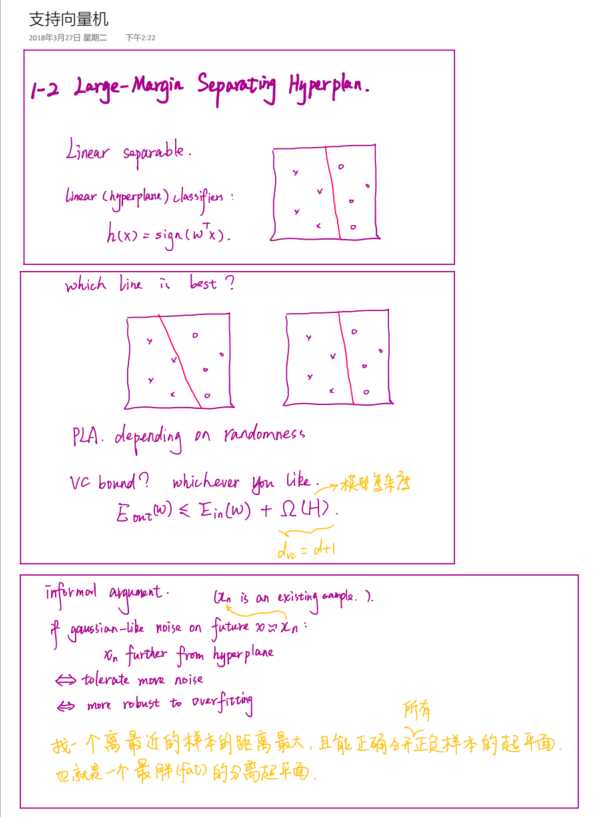 支持向量机
2018年3月27日 星期二 下午2:22
1-2 Large-Margin Separating Hyperplan.
Linear separable.
Linear (hyperplane) classifiers:
h(x) = sign(wᵀx).
which line is best?
PLA. depending on randomness
VC bound? whichever you like. → 模型复杂度
Eout(w) ≤ Ein(w) + Ω(H).
dvc = d+1
informal argument. (xn is an existing example.).
if gaussian-like noise on future x ≈ xn:
xn further from hyperplane
⇔ tolerate more noise
⇔ more robust to overfitting
所有
找一个离最近的样本的距离最大,且能正确分开正负样本的超平面.
也就是一个最胖(fat)的分离超平面.